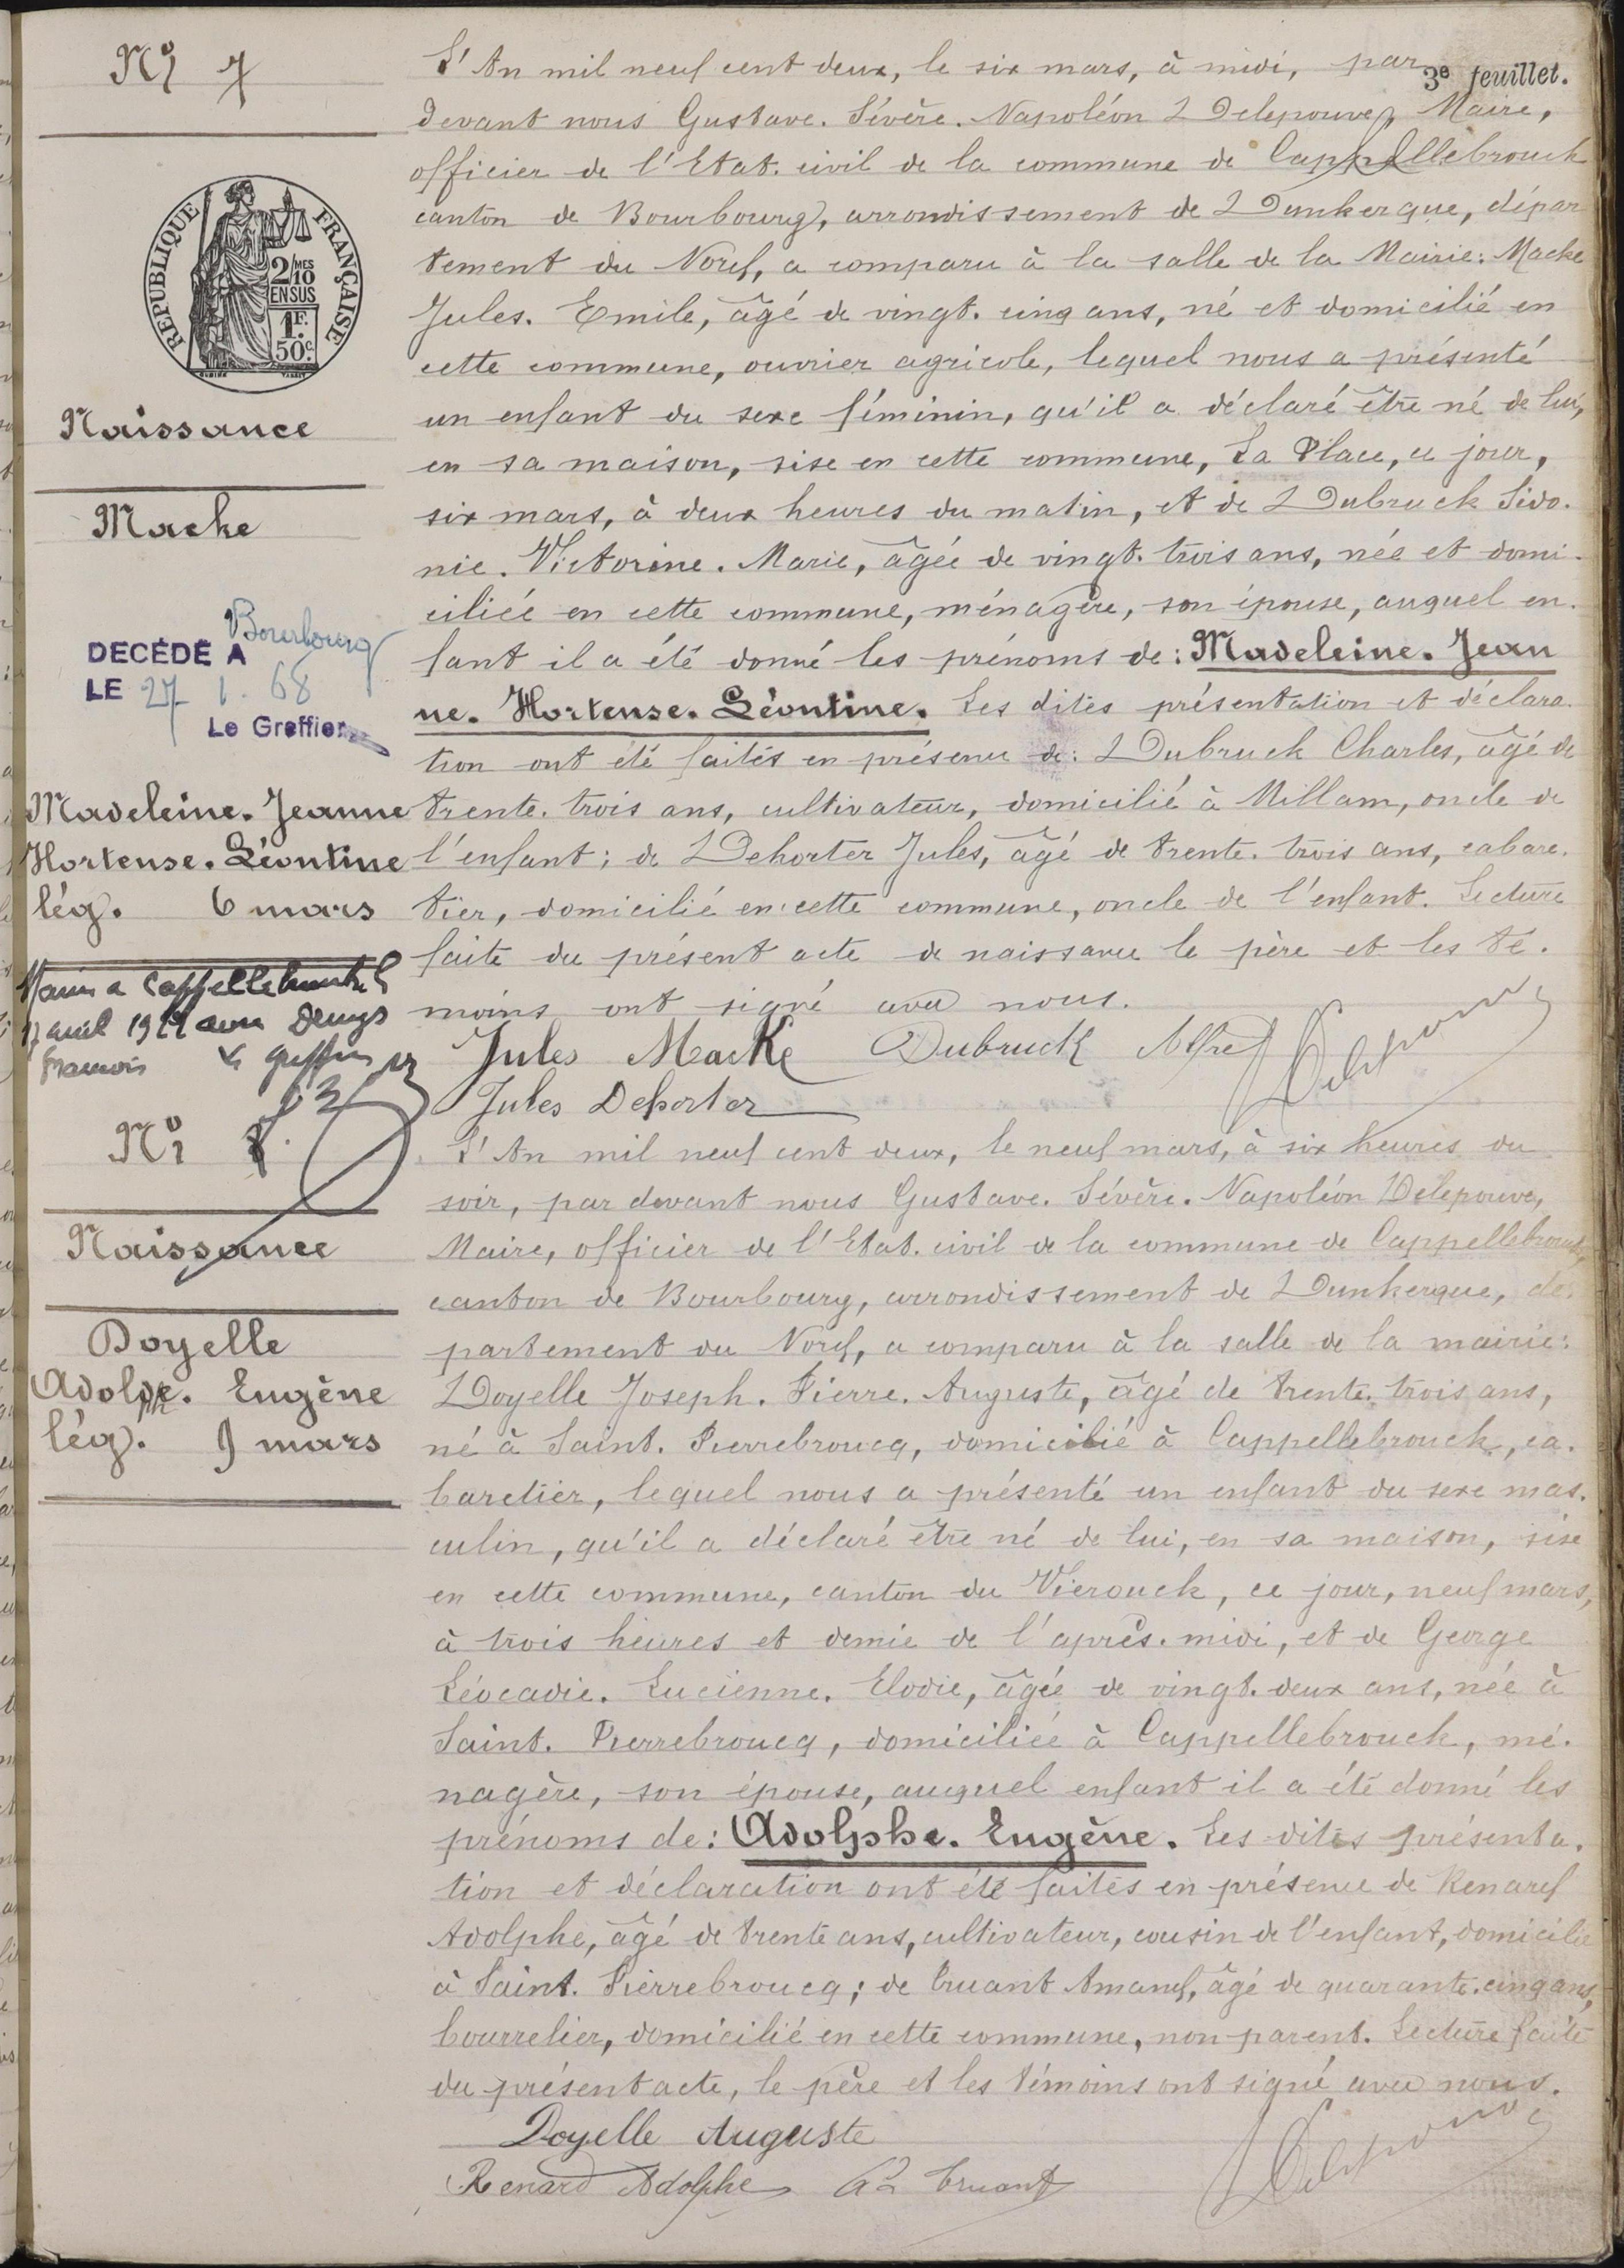 3e feuillet.
No 7
REPUBLIQUE FRANÇAISE
2/10 MES
EN SUS
1F.
50c.
Naissance
Macke
DECÉDÉ A Bourbourg
LE 27 1. 68
Le Greffier
Madeleine. Jeanne
Hortense. Léontine
lég. 6 mars
Cappellebrouck
avril avec Denys
François Le greffier
L'An mil neuf cent deux, le six mars, à midi, par
devant nous Gustave. Sévère. Napoléon Delepouve, Maire,
officier de l'Etat. civil de la commune de Cappellebrouck
canton de Bourbourg, arrondissement de Dunkerque, dépar
tement du Nord, a comparu à la salle de la Mairie: Macke
Jules. Emile, âgé de vingt. cinq ans, né et domicilié en
cette commune, ouvrier agricole, lequel nous a présenté
un enfant du sexe féminin, qu'il a déclaré être né de lui,
en sa maison, sise en cette commune, La Place, ce jour,
six mars, à deux heures du matin, et de Dubruck Sido.
nie. Victorine. Marie, âgée de vingt. trois ans, née et domi.
ciliée en cette commune, ménagère, son épouse, auquel en.
fant il a été donné les prénoms de: Madeleine. Jean
ne. Hortense. Léontine. Les dites présentation et déclara.
tion ont été faites en présence de: Dubruck Charles, âgé de
trente. trois ans, cultivateur, domicilié à Millam, oncle de
l'enfant; de Dehorter Jules, âgé de trente. trois ans, cabare.
tier, domicilié en cette commune, oncle de l'enfant. Lecture
faite du présent acte de naissance le père et les té.
moins ont signé avec nous.
Jules Macke Dubruck Delepouve
Jules Dehorter
No 8.
Naissance
Doyelle
Adolphe. Eugène
lég. 9 mars
L'An mil neuf cent deux, le neuf mars, à six heures du
soir, par devant nous Gustave. Sévère. Napoléon Delepouve,
Maire, officier de l'Etat. civil de la commune de Cappellebrouck,
canton de Bourbourg, arrondissement de Dunkerque, dé.
partement du Nord, a comparu à la salle de la mairie:
Doyelle Joseph. Pierre. Auguste, âgé de trente. trois ans,
né à Saint. Pierrebroucq, domicilié à Cappellebrouck, ca.
baretier, lequel nous a présenté un enfant du sexe mas.
culin, qu'il a déclaré être né de lui, en sa maison, sise
en cette commune, canton du Vierouck, ce jour, neuf mars,
à trois heures et demie de l'après. midi, et de George
Léocadie. Lucienne. Elodie, âgée de vingt. deux ans, née à
Saint. Pierrebroucq, domiciliée à Cappellebrouck, mé.
nagère, son épouse, auquel enfant il a été donné les
prénoms de: Adolphe. Eugène. Les dites présenta.
tion et déclaration ont été faites en présence de Renard
Adolphe, âgé de trente ans, cultivateur, cousin de l'enfant, domicilié
à Saint. Pierrebroucq; de Cruant Amand, âgé de quarante. cinq ans,
bourrelier, domicilié en cette commune, non parent. Lecture faite
du présent acte, le père et les témoins ont signé avec nous.
Doyelle Auguste
Renard Adolphe Cruant Delepouve